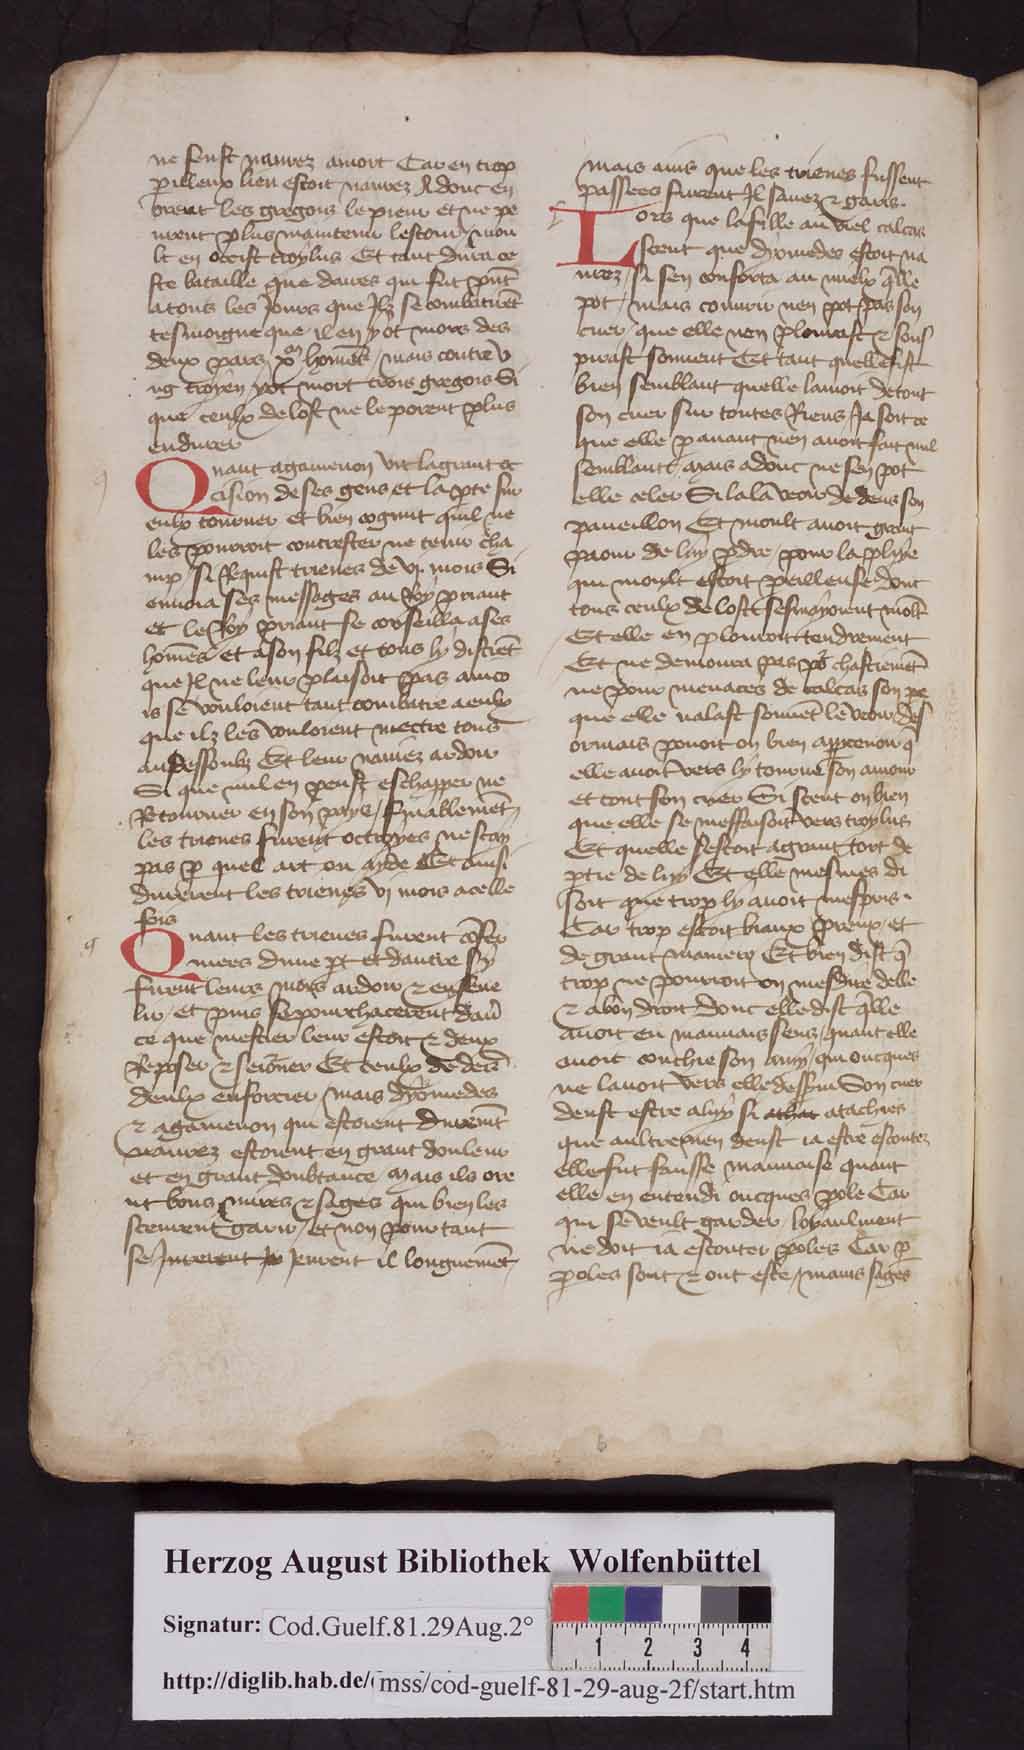 ne feust navrez amort Car en trop
pilleux lieu estoit navrez Adonc en
brent les gregois le pieur et ne pe
urent plus maintenir lestour / mou
lt en occist troylus Et tant dura ce
ste bataille que daires qui fut pñt
atous les Jours que Jlz se combatirẽt
tesmoigne que il en y ot mors des
deux pars xᵐ homẽs / mais contre v
ng troyen yot mort trois gregois Si
que ceulx de lost ne le porent plus
endurer
Quant agamenon vit lagrant oc
cision de ses gens et la pte sur
eulx tourner et bien cognut quil ne
les pourroit contrester ne tenir cha
mp / si Requist trieues de vi mois Si
enuoia ses messages au Roy priant
et le Roy priant se conseilla ases
homẽs et ason filz et tous ly disrẽt
que Jl ne leur plaisoit pas ainco
is sẽ vouloient tant combatre aeulx
que ilz les vouloient mectre tous
audessoubz Et leur naviez ardoir
Si que nul en peust eschapper ne
Retourner en son pays / finallemẽt
les trieues furent octroyes ne scay
pas p quel art ou ayde Et ainsi
durerent les trieues vi mois acelle
fois
Quant les trieues furent cõfer
mees dune pt et dautre sy
furent leurs mors ardoir & enseue
lir / et puis se pourchacerent dauᵉ
ce que mestier leur estoit & deux
Reposer & seioʳner Et ceulx de deᵈˢ
deulx enforcier / mais dyomedes
& agamenon qui estoient duremẽt
navrez estoient en grant douleur
et en grant doubtance mais ils ore
nt bons mires & sages qui bien les
sceurent garir / et non pour tant
se Jeurent il longuemẽt

mais ains que les trieues fussent
passees furent Jl sanez & garis.
Lors que la fille au viel calcas
sceut que dyomedes estoit na
urez / si sen conforta au mielx qlle
pot / mais couurir nen pot pas son
cuer / que elle nen plourast & sous
pirast souuent Et tant quelle fist
bien semblant quelle lamoit de tout
son cuer sur toutes Riens / Ja soit ce
que elle p auant nen auoit fait nul
semblant / mais adonc ne sen pot
elle celer Si lala veoir de dens son
paueillon Et moult auoit grant
paour de luy pdre / pour la playe
qui moult estoit pilleuse dont
tous ceulx de lost sesmayoient molt
Et elle en plouroit tendrement
Et ne demoura pas poʳ chastiemẽt
ne pour menaces de calcas son pe
que elle nalast souuẽt le veoir des
ormais pouoit on bien apceuoir q̃
elle auoit vers ly tourne son amour
et tout son cuer Si sceut on bien
que elle se meffaisoit vers troylus
Et quelle sestoit agrant tort de
ptie de luy Et elle mesmes di
soit que trop ly auoit mespris.
Car trop estoit biaux preux et
de grant maniere Et bien dist q̃
trop ne pourroit on mesdire delle
& abõn droit donc elle dist qlle
auoit eu mauuais sens / quant elle
auoit conchie son amy / qui oncques
ne lauoit vers elle desseruy Son cuer
deust estre aluy si atachies
que aultre nen deust ia estre escoutez
elle fut fausse mauuaise quant
elle en entendi oncques pole Car
qui se veult garder loyaulment
ne doit ia escouter poles Car p
poles sont & ont este / mains sages

Herzog August Bibliothek Wolfenbüttel
Signatur: Cod.Guelf.81.29Aug.2°
1 2 3 4
http://diglib.hab.de/mss/cod-guelf-81-29-aug-2f/start.htm